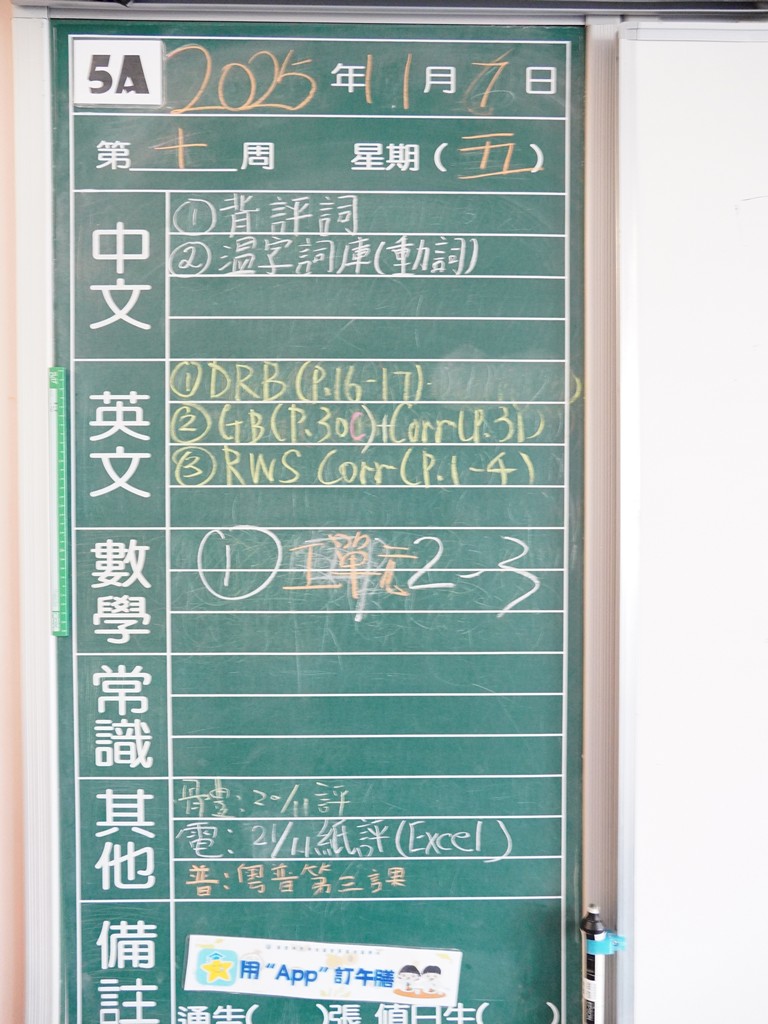 5A 2025年11月7日
第十周 星期(五)
中文
①背評詞
②温字詞庫(動詞)
英文
①DRB(P.16-17)
②GB(P.30C)+Corr(P.31)
③RWS Corr(P.1-4)
數學
①工單元2-3
常識
其他
體:20/11評
電:21/11紙評(Excel)
普:粵普第三課
備註
用“App”訂午膳
通告( )張 值日生( )